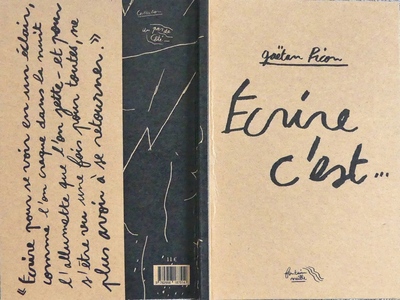 « Ecrire pour se voir en un éclair,
comme l'on craque dans la nuit
l'allumette que l'on jette – et pour
s'être vu une fois pour toutes, ne
plus avoir à se retourner. »
Collection
11 €
gaëtan Picon
Ecrire
c'est...